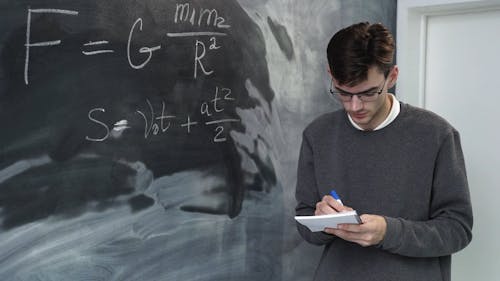 F = G m₁m₂ / R²
S = V₀t + at² / 2